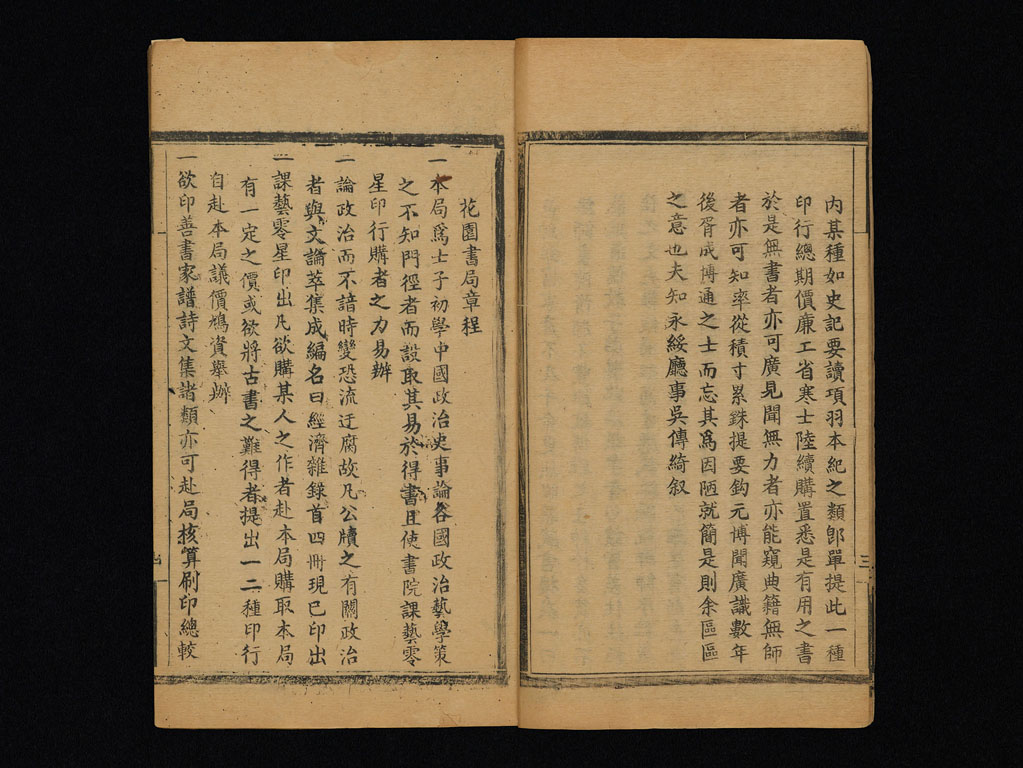 內某種如史記要讀項羽本紀之類郎單提此一種
印行總期價廉工省寒士陸續購置悉是有用之書
於是無書者亦可廣見聞無力者亦能窺典籍無師
者亦可知率從積寸累銖提要鈎元博聞廣識數年
後胥成博通之士而忘其爲因陋就簡是則余區區
之意也夫知永綏廳事吳傳綺叙
三
花園書局章程
一本局爲士子初學中國政治史事論各國政治藝學策
之不知門徑者而設取其易於得書且使書院課藝零
星印行購者之力易辦
一論政治而不諳時變恐流迂腐故凡公牘之有關政治
者與文論萃集成編名曰經濟雜錄首四冊現已印出
一課藝零星印出凡欲購某人之作者赴本局購取本局
有一定之價或欲將古書之難得者提出一二種印行
自赴本局議價鳩資舉辦
一欲印善書家譜詩文集諸類亦可赴局核算刷印總較